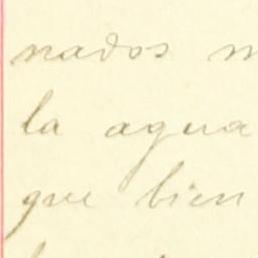 nados
la agua
que bien